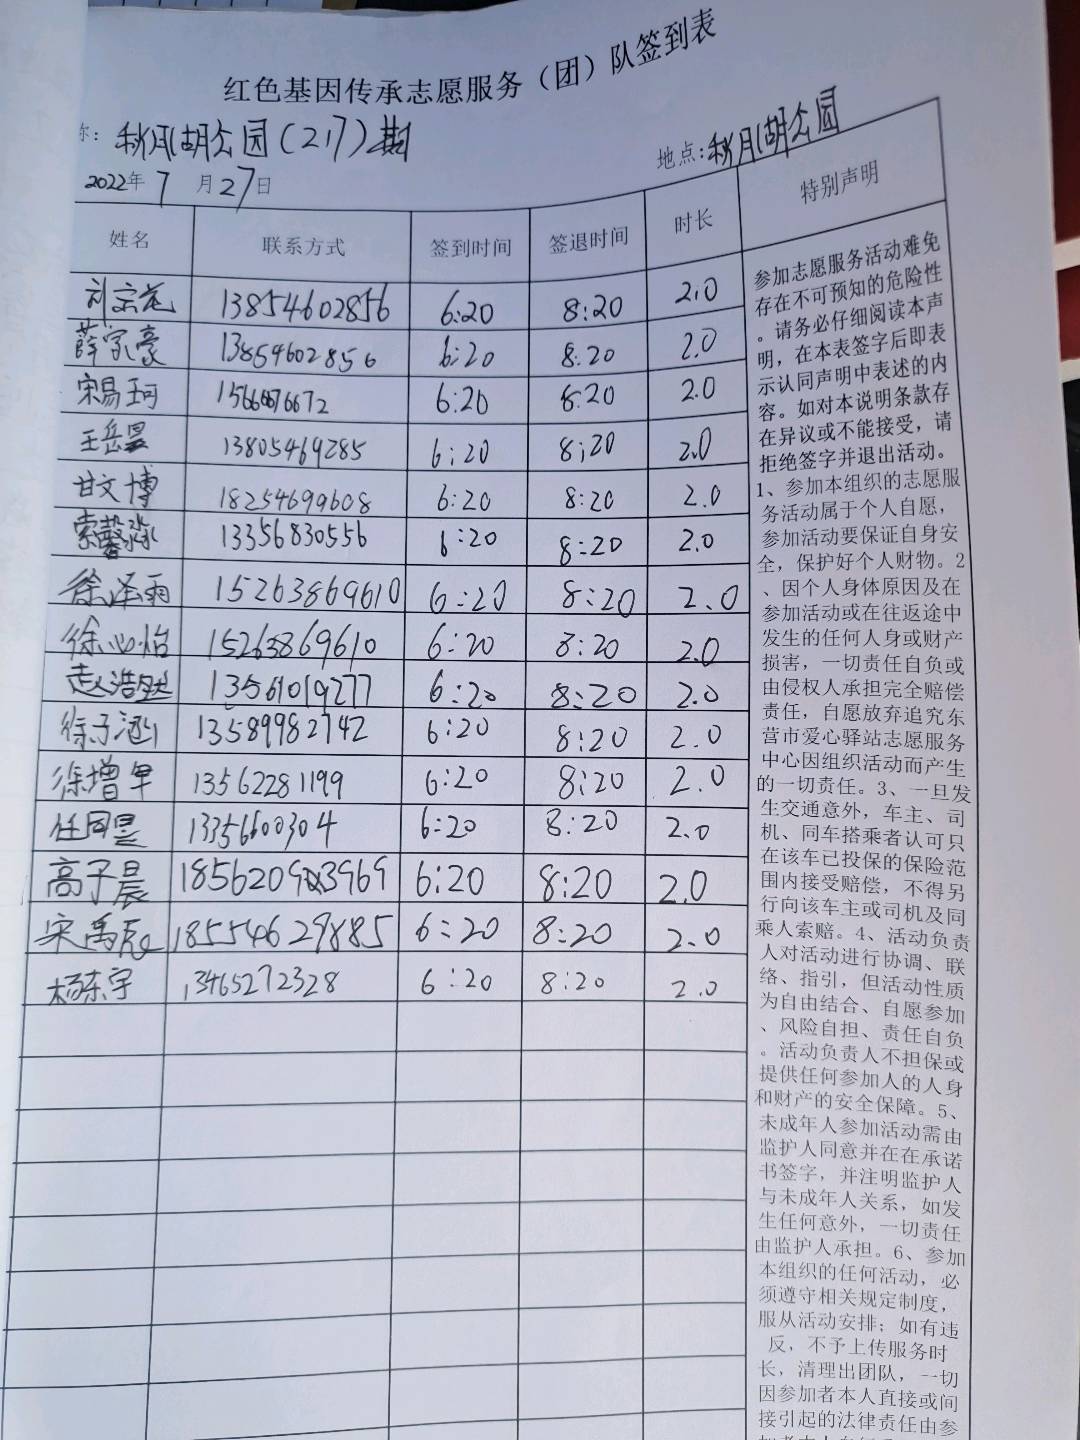 红色基因传承志愿服务（团）队签到表
称：秋月湖公园(217)期 地点:秋月湖公园
2022年7月27日
姓名 联系方式 签到时间 签退时间 时长 特别声明
刘宗花 13854602856 6:20 8:20 2.0
薛家豪 13854602856 6:20 8:20 2.0
宋易珂 6:20 8:20 2.0
王岳昊 13805469285 6:20 8:20 2.0
甘文博 18254699608 6:20 8:20 2.0
索馨淼 13356830556 6:20 8:20 2.0
徐泽雨 15263869610 6:20 8:20 2.0
徐心怡 15263869610 6:20 8:20 2.0
赵浩然 13561019277 6:20 8:20 2.0
徐子涵 13589982742 6:20 8:20 2.0
徐增早 13562281199 6:20 8:20 2.0
任同昱 13356600304 6:20 8:20 2.0
高子晨 6:20 8:20 2.0
宋禹辰 18554629885 6:20 8:20 2.0
杨东宇 13465272328 6:20 8:20 2.0
参加志愿服务活动难免
存在不可预知的危险性
。请务必仔细阅读本声
明，在本表签字后即表
示认同声明中表述的内
容。如对本说明条款存
在异议或不能接受，请
拒绝签字并退出活动。
1、参加本组织的志愿服
务活动属于个人自愿，
参加活动要保证自身安
全，保护好个人财物。2
、因个人身体原因及在
参加活动或在往返途中
发生的任何人身或财产
损害，一切责任自负或
由侵权人承担完全赔偿
责任，自愿放弃追究东
营市爱心驿站志愿服务
中心因组织活动而产生
的一切责任。3、一旦发
生交通意外，车主、司
机、同车搭乘者认可只
在该车已投保的保险范
围内接受赔偿，不得另
行向该车主或司机及同
乘人索赔。4、活动负责
人对活动进行协调、联
络、指引，但活动性质
为自由结合、自愿参加
、风险自担、责任自负
。活动负责人不担保或
提供任何参加人的人身
和财产的安全保障。5、
未成年人参加活动需由
监护人同意并在在承诺
书签字，并注明监护人
与未成年人关系，如发
生任何意外，一切责任
由监护人承担。6、参加
本组织的任何活动，必
须遵守相关规定制度，
服从活动安排；如有违
反，不予上传服务时
长，清理出团队，一切
因参加者本人直接或间
接引起的法律责任由参